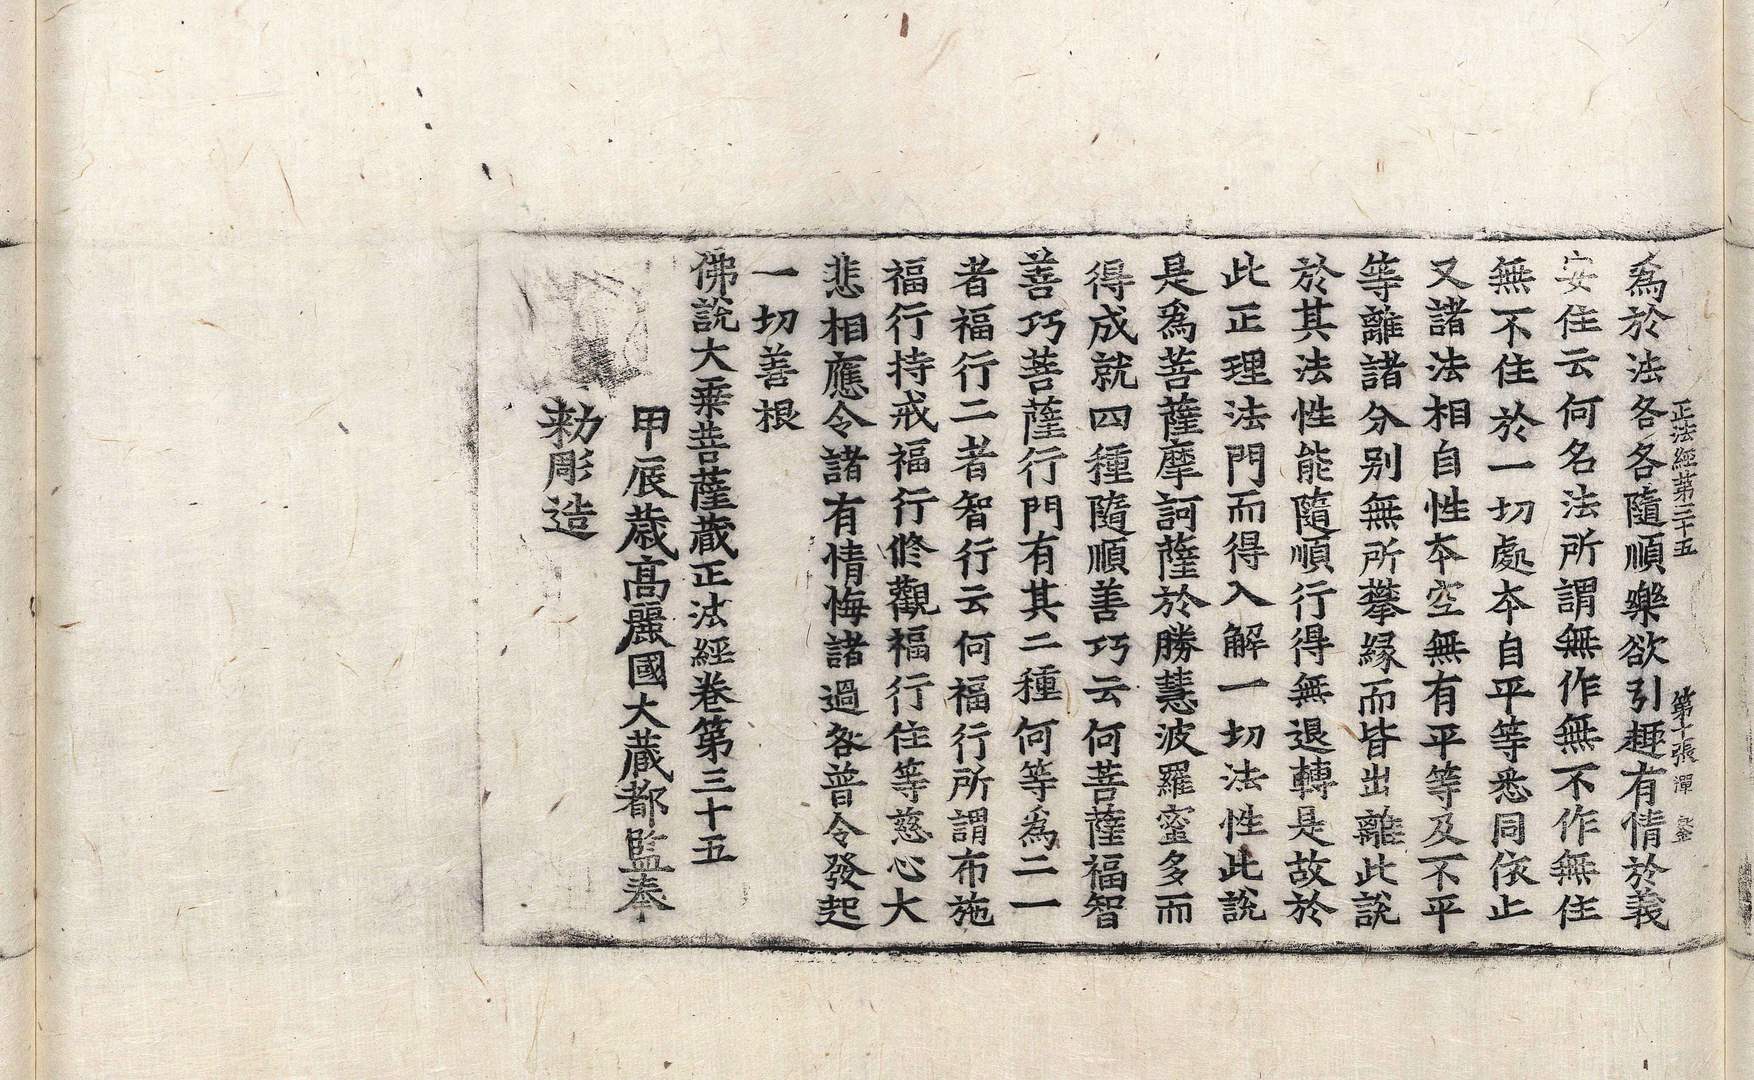 正法經第三十五 第十張
爲於法各各隨順樂欲引趣有情於義
安住云何名法所謂無作無不作無住
無不住於一切處本自平等悉同依止
又諸法相自性本空無有平等及不平
等離諸分別無所攀縁而皆出離此說
於其法性能隨順行得無退轉是故於
此正理法門而得入解一切法性此說
是爲菩薩摩訶薩於勝慧波羅蜜多而
得成就四種隨順善巧云何菩薩福智
善巧菩薩行門有其二種何等爲二一
者福行二者智行云何福行所謂布施
福行持戒福行修觀福行住等慈心大
悲相應令諸有情悔諸過咎普令發起
一切善根
佛說大乘菩薩藏正法經卷第三十五
甲辰歲高麗國大藏都監奉
勑彫造